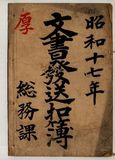 昭和十七年
厚
文書發送扣簿
総務課